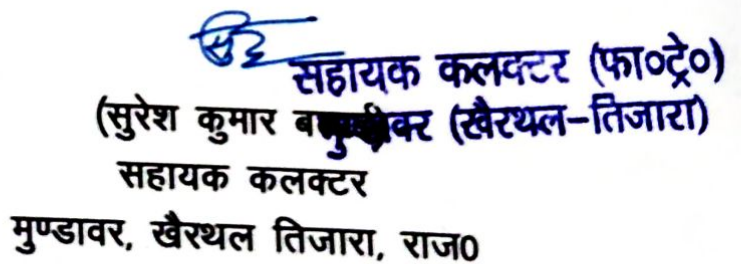 सहायक कलक्टर (फा०ट्रे०)
(सुरेश कुमार
(खैरथल-तिजारा)
सहायक कलक्टर
मुण्डावर, खैरथल तिजारा, राज0